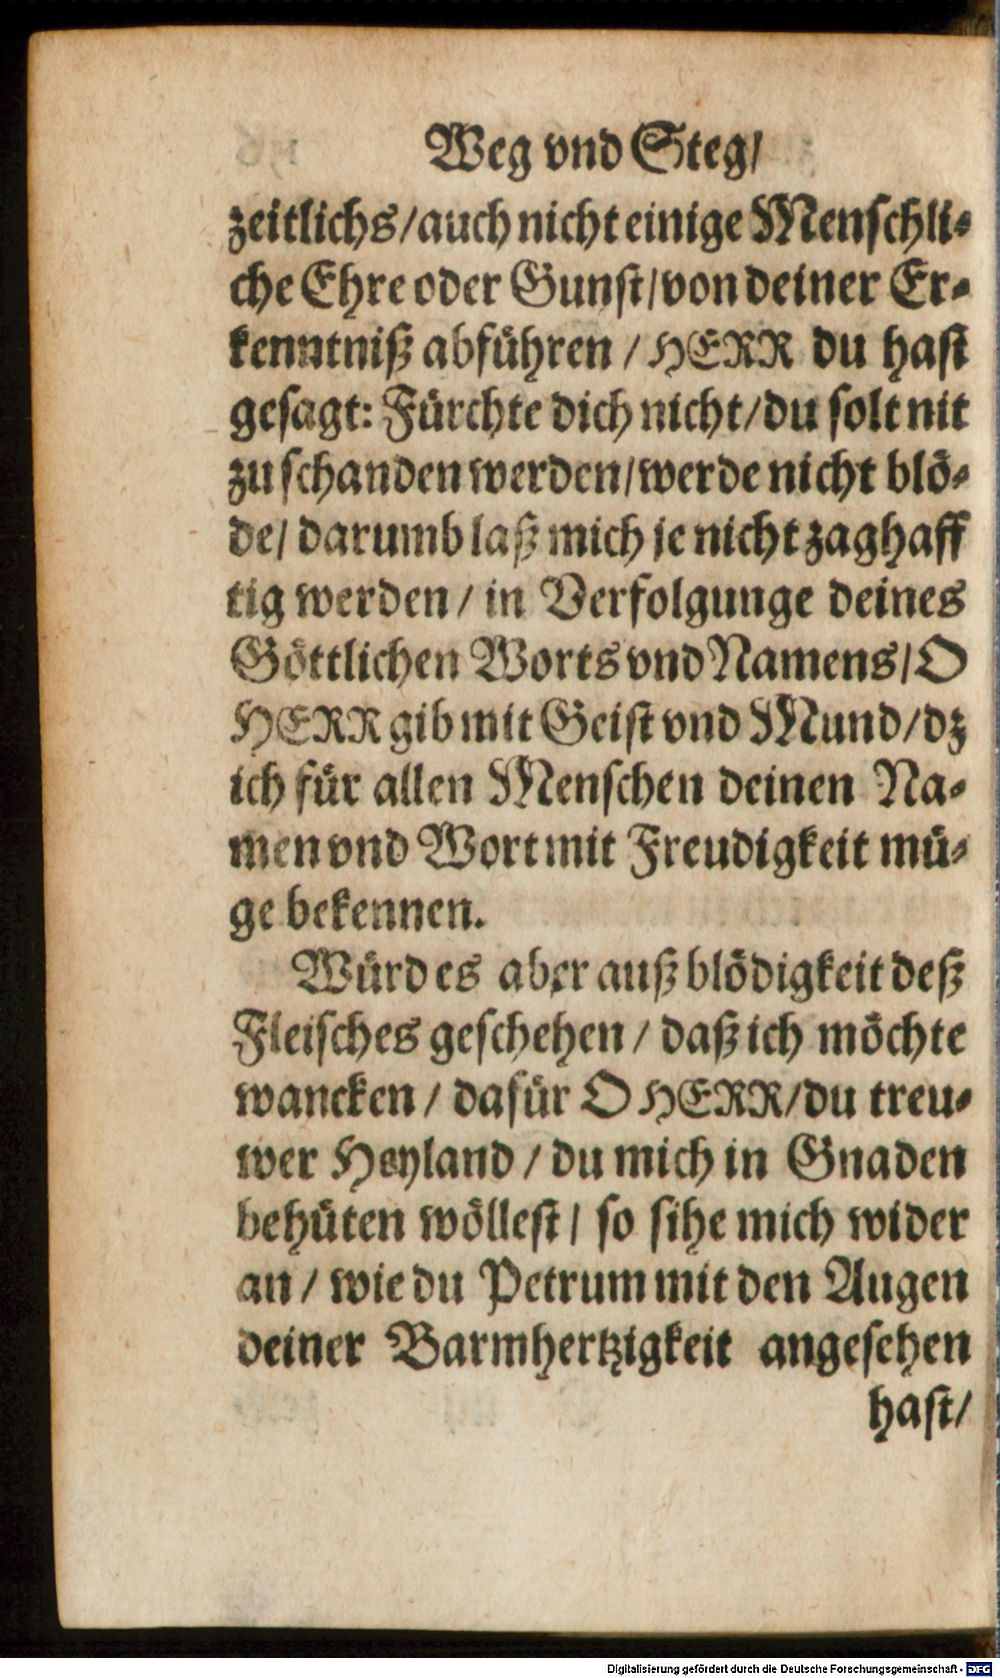 Weg vnd Steg/
zeitlichs/auch nicht einige Menschli-
che Ehre oder Gunst/von deiner Er-
kenntniß abführen / HERR du hast
gesagt: Fürchte dich nicht/du solt nit
zu schanden werden/werde nicht blö-
de/ darumb laß mich je nicht zaghaff
tig werden / in Verfolgunge deines
Göttlichen Worts vnd Namens/O
HERR gib mit Geist vnd Mund/dz
ich für allen Menschen deinen Na-
men vnd Wort mit Freudigkeit mü-
ge bekennen.
Würd es aber auß blödigkeit deß
Fleisches geschehen / daß ich möchte
wancken / dafür O HERR/du treu-
wer Heyland / du mich in Gnaden
behüten wöllest / so sihe mich wider
an / wie du Petrum mit den Augen
deiner Barmhertzigkeit angesehen
hast/
Digitalisierung gefördert durch die Deutsche Forschungsgemeinschaft - DFG